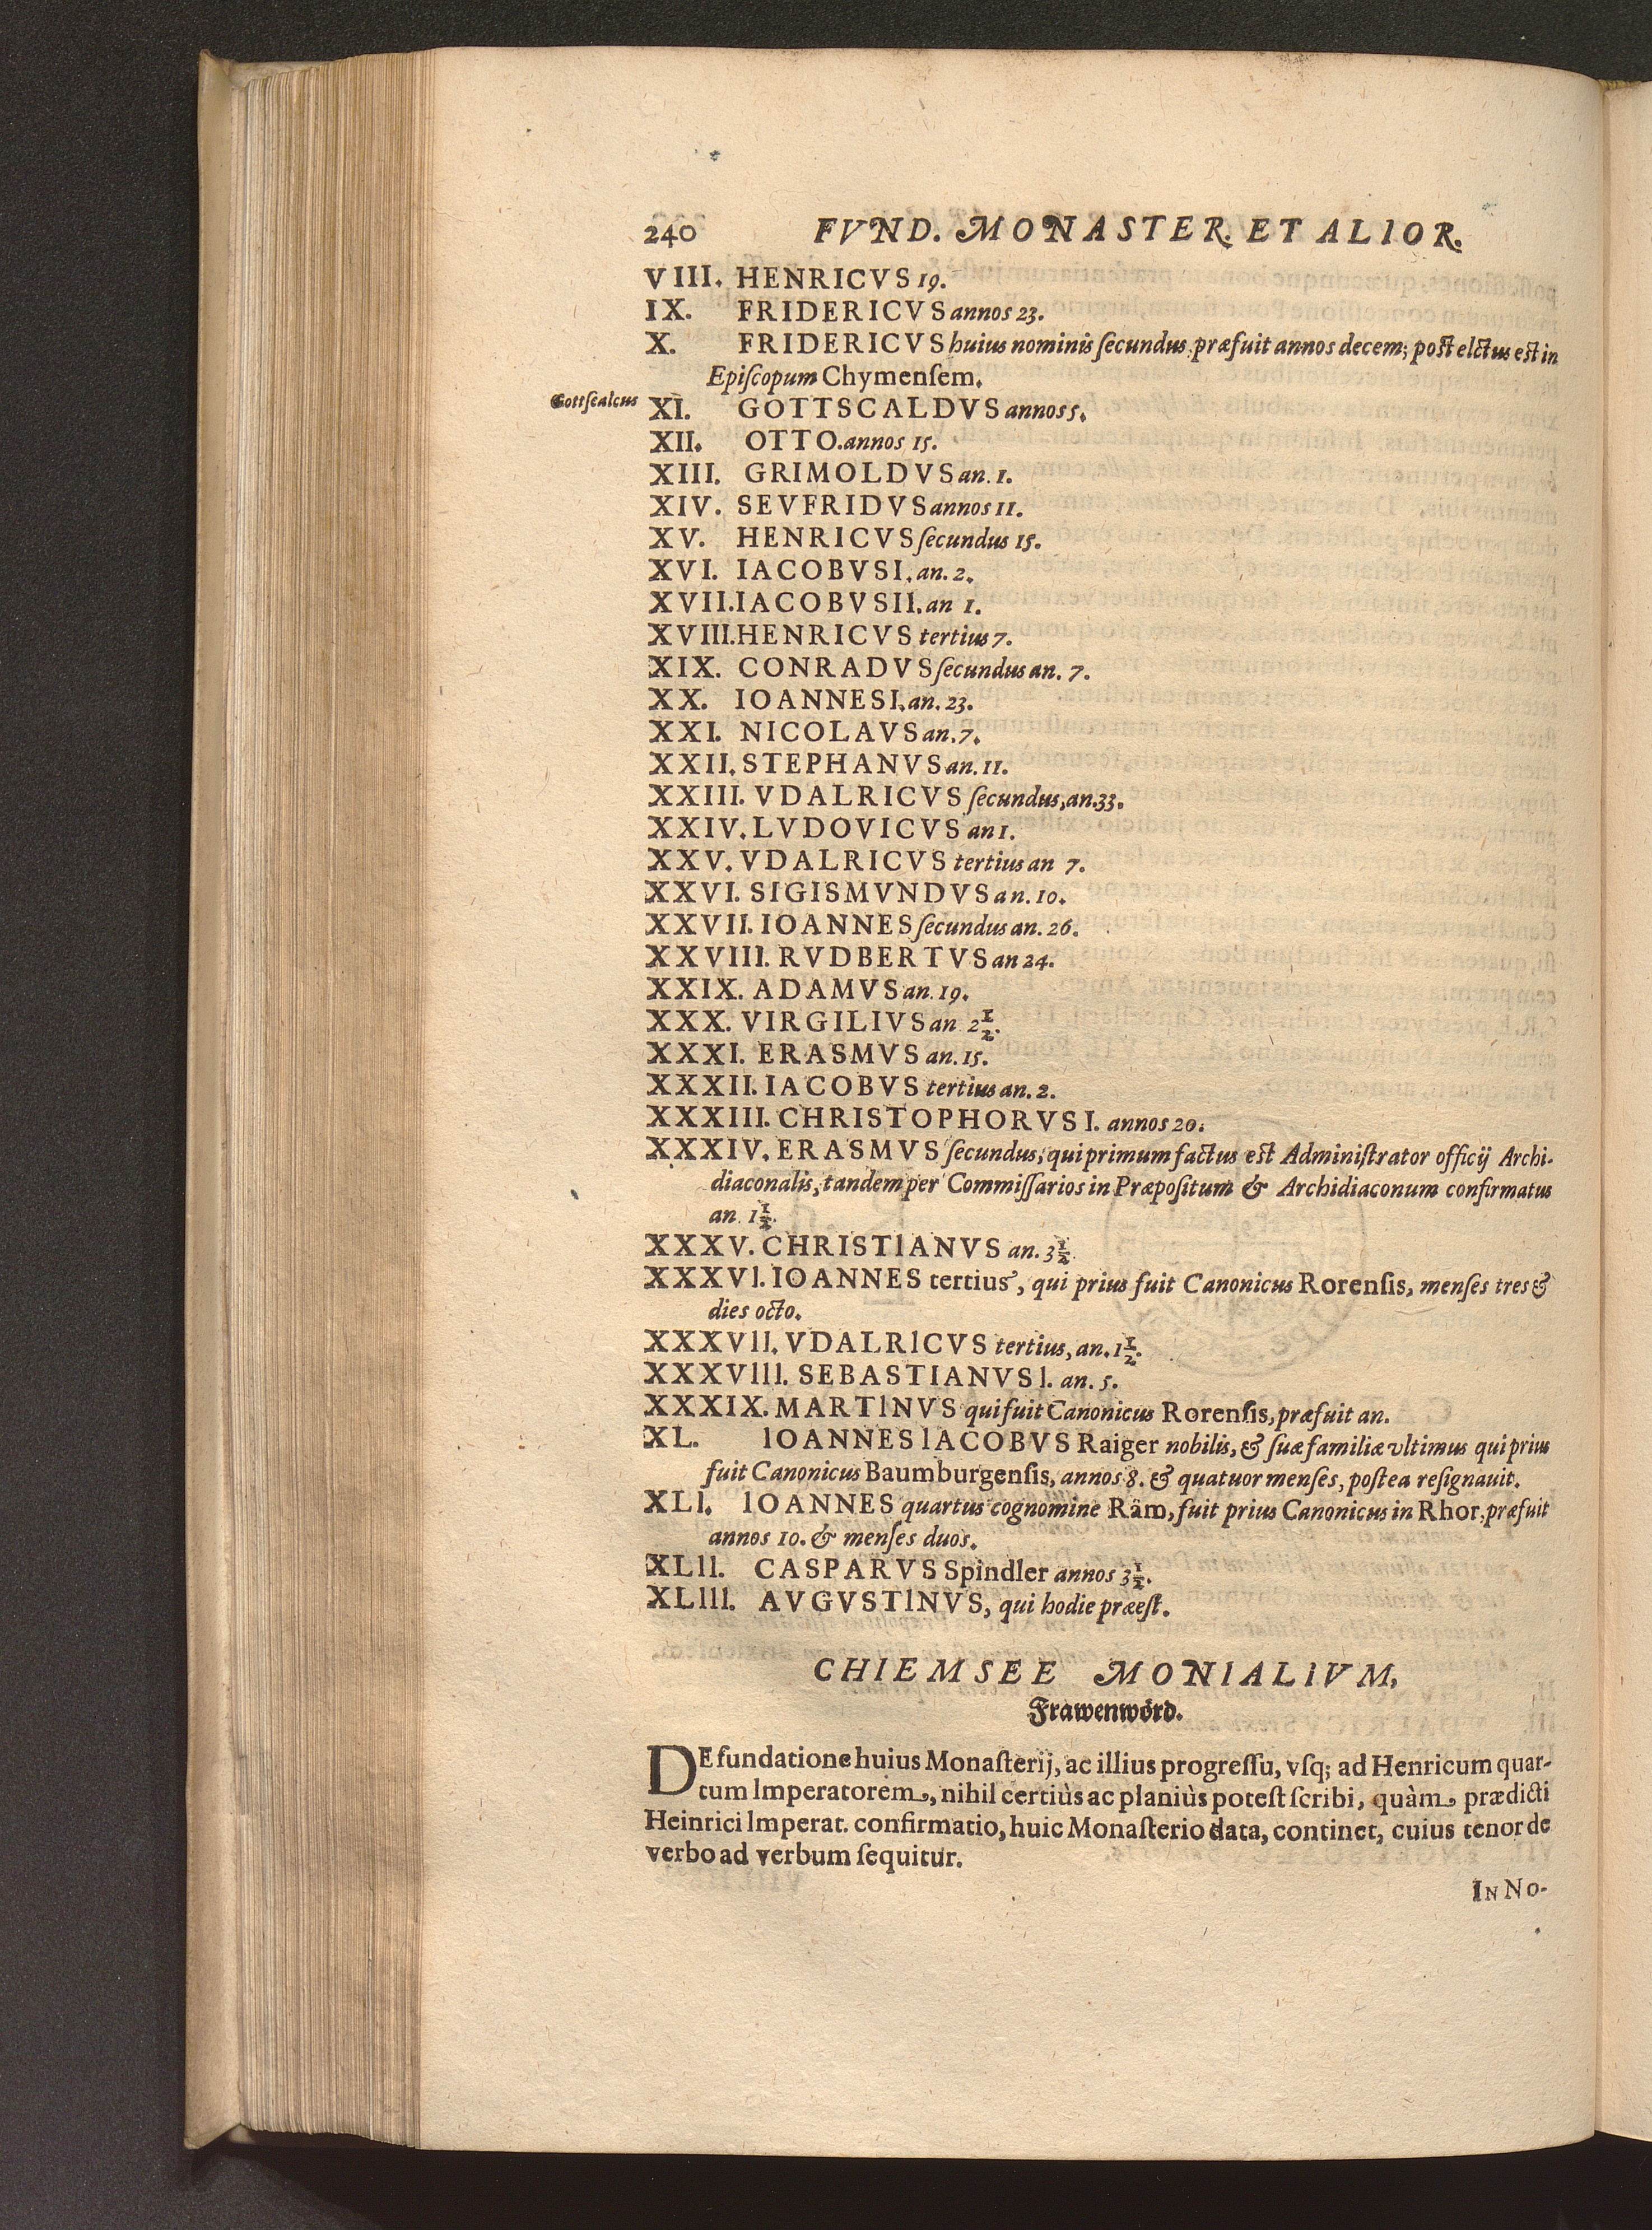 240 FVND. MONASTER. ET ALIOR.
VIII. HENRICVS 19.
IX. FRIDERICVS annos 23.
X. FRIDERICVS huius nominis ſecundus præfuit annos decem; post elctus est in
Epiſcopum Chymenſem.
Gottſcalcus XI. GOTTSCALDVS annos 5.
XII. OTTO. annos 15.
XIII. GRIMOLDVS an. 1.
XIV. SEVFRIDVS annos 11.
XV. HENRICVS ſecundus 15.
XVI. IACOBVS I. an. 2.
XVII. IACOBVS II. an 1.
XVIII. HENRICVS tertius 7.
XIX. CONRADVS ſecundus an. 7.
XX. IOANNES I. an. 23.
XXI. NICOLAVS an. 7.
XXII. STEPHANVS an. 11.
XXIII. VDALRICVS ſecundus, an. 33.
XXIV. LVDOVICVS an 1.
XXV. VDALRICVS tertius an 7.
XXVI. SIGISMVNDVS an. 10.
XXVII. IOANNES ſecundus an. 26.
XXVIII. RVDBERTVS an 24.
XXIX. ADAMVS an. 19.
XXX. VIRGILIVS an 2½.
XXXI. ERASMVS an. 15.
XXXII. IACOBVS tertius an. 2.
XXXIII. CHRISTOPHORVS I. annos 20.
XXXIV. ERASMVS ſecundus, qui primum factus est Adminiſtrator officij Archi-
diaconalis, tandem per Commiſſarios in Præpoſitum & Archidiaconum confirmatus
an. 1½.
XXXV. CHRISTIANVS an. 3½.
XXXVI. IOANNES tertius, qui prius fuit Canonicus Rorenſis, menſes tres &
dies octo.
XXXVII. VDALRICVS tertius, an. 1½.
XXXVIII. SEBASTIANVS I. an. 5.
XXXIX. MARTINVS qui fuit Canonicus Rorenſis, præfuit an.
XL. IOANNES IACOBVS Raiger nobilis, & ſuæ familiæ vltimus qui prius
fuit Canonicus Baumburgenſis, annos 8. & quatuor menſes, poſtea reſignauit.
XLI. IOANNES quartus cognomine Räm, fuit prius Canonicus in Rhor, præfuit
annos 10. & menſes duos.
XLII. CASPARVS Spindler annos 3½.
XLIII. AVGVSTINVS, qui hodie præeſt.
CHIEMSEE MONIALIVM,
Frawenwörd.
DE fundatione huius Monaſterij, ac illius progreſſu, vſq; ad Henricum quar-
tum Imperatorem, nihil certiùs ac planiùs poteſt ſcribi, quàm prædicti
Heinrici Imperat. confirmatio, huic Monaſterio data, continet, cuius tenor de
verbo ad verbum ſequitur.
IN NO-